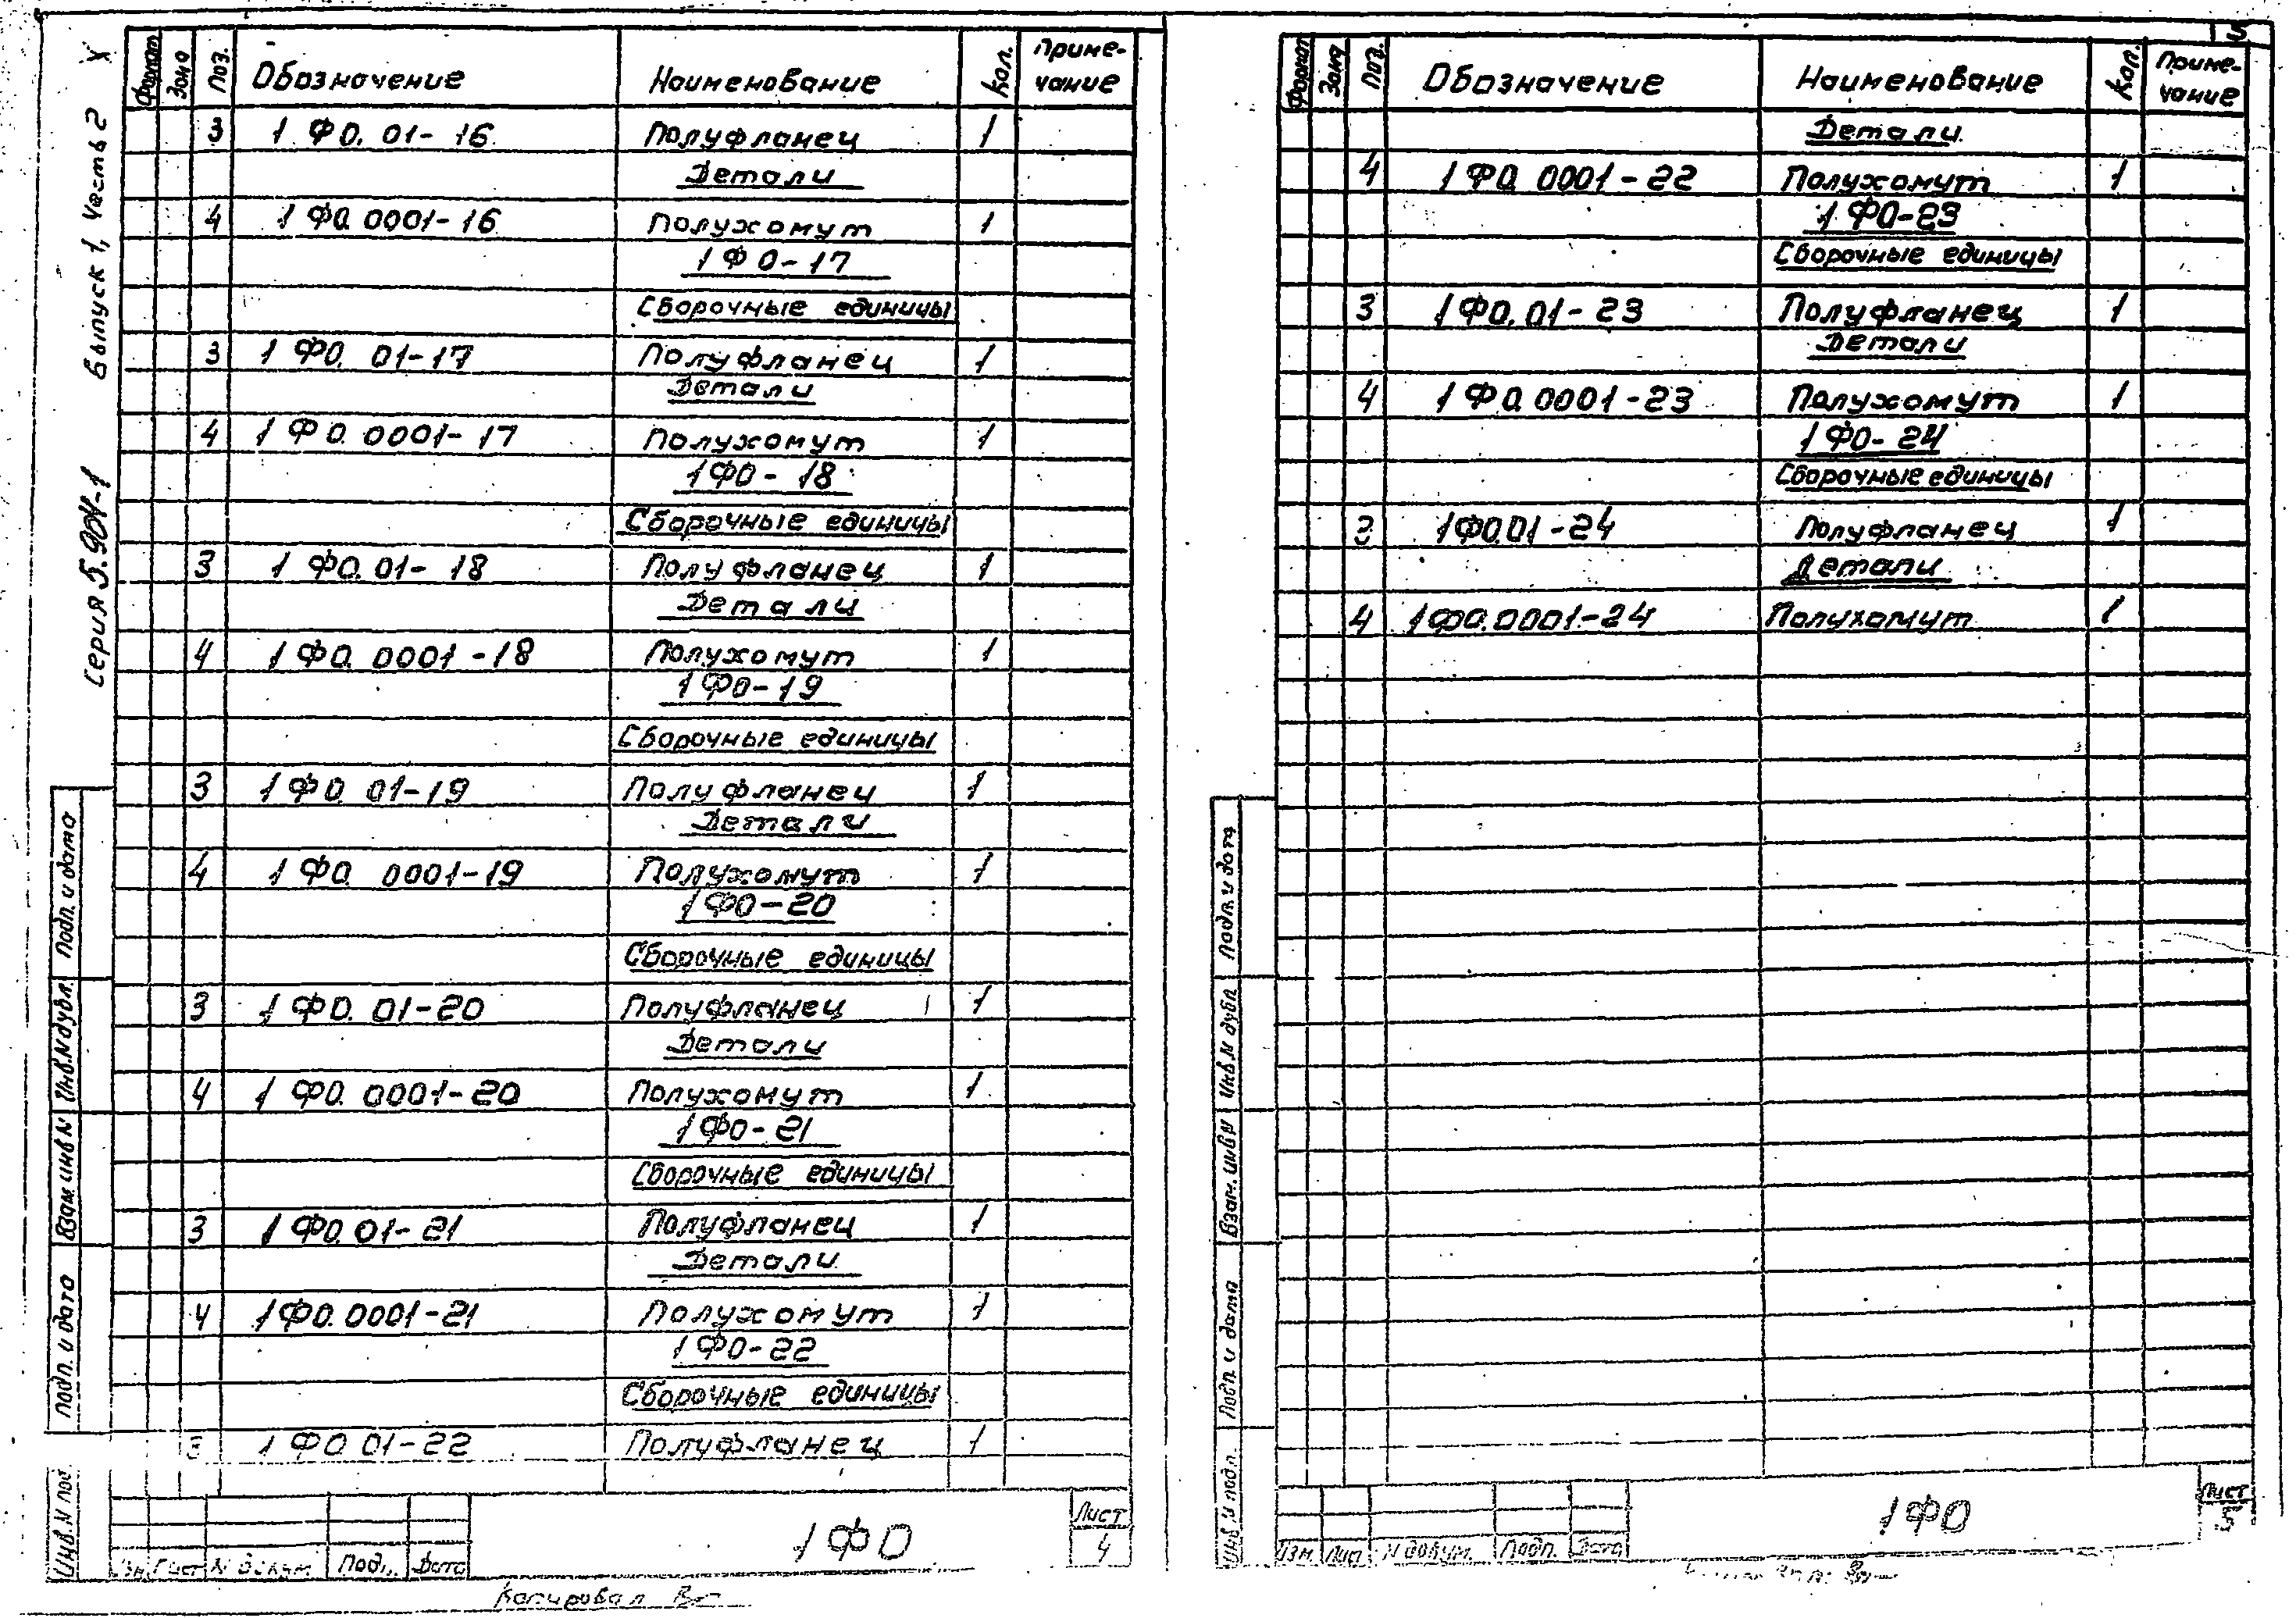 Серия 5.904-1 Выпуск 1, Часть 2
Формат Зона Поз. Обозначение Наименование Кол. Приме-
чание
3 1 ФО. 01-16 Полуфланец 1
Детали
4 1 ФО. 0001-16 Полухомут 1
1 ФО-17
Сборочные единицы
3 1 ФО. 01-17 Полуфланец 1
Детали
4 1 ФО. 0001-17 Полухомут 1
1 ФО-18
Сборочные единицы
3 1 ФО. 01-18 Полуфланец 1
Детали
4 1 ФО. 0001-18 Полухомут 1
1 ФО-19
Сборочные единицы
3 1 ФО. 01-19 Полуфланец 1
Детали
4 1 ФО. 0001-19 Полухомут 1
1 ФО-20
Сборочные единицы
3 1 ФО. 01-20 Полуфланец 1
Детали
4 1 ФО. 0001-20 Полухомут 1
1 ФО-21
Сборочные единицы
3 1 ФО. 01-21 Полуфланец 1
Детали
4 1 ФО. 0001-21 Полухомут 1
1 ФО-22
Сборочные единицы
3 1 ФО 01-22 Полуфланец 1
Подп. и дата
Инв.N дубл.
Взам инв N
Подп. и дата
Инв. N под.
Изм Лист N докум. Подп. Дата
1 ФО
Лист
4
Копировал
5
Формат Зона Поз. Обозначение Наименование Кол. Приме-
чание
Детали
4 1 ФО. 0001-22 Полухомут 1
1 ФО-23
Сборочные единицы
3 1 ФО. 01-23 Полуфланец 1
Детали
4 1 ФО. 0001-23 Полухомут 1
1 ФО-24
Сборочные единицы
3 1 ФО.01-24 Полуфланец 1
Детали
4 1 ФО.0001-24 Полухомут 1
Подп. и дата
Инв.N дубл
Взам. инв N
Подп. и дата
Инв. N подл.
Изм. Лист N докум. Подп. Дата
1 ФО
Лист
5